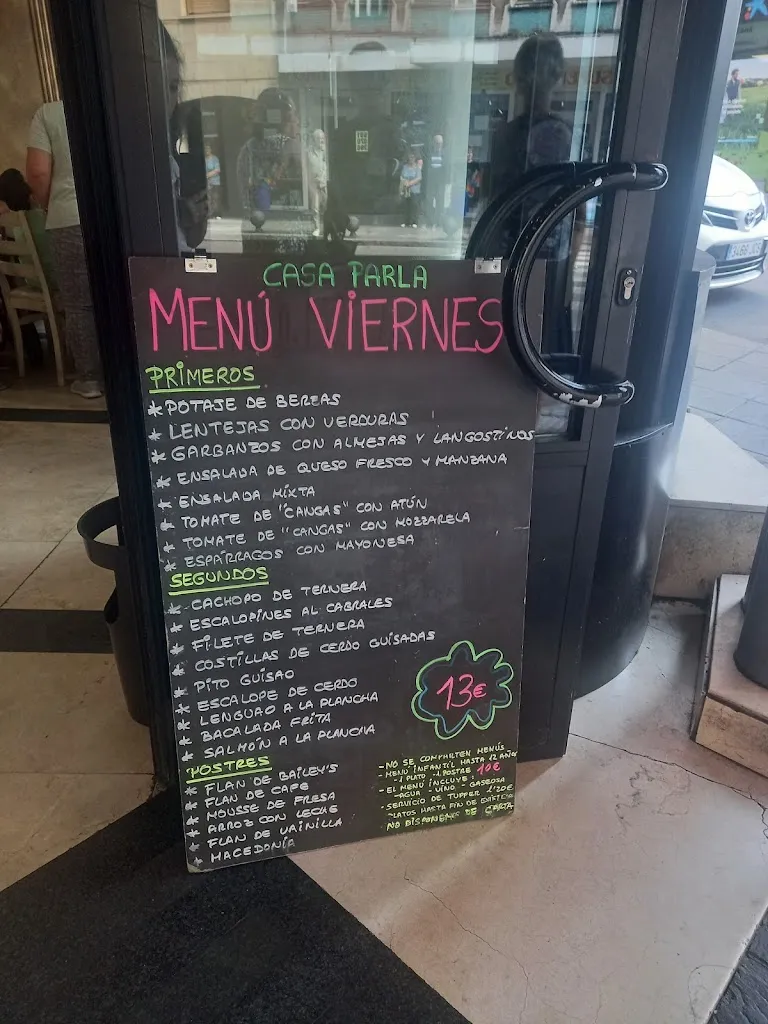 CASA PARLA
MENÚ VIERNES
PRIMEROS
* POTAJE DE BERZAS
* LENTEJAS CON VERDURAS
* GARBANZOS CON ALMEJAS Y LANGOSTINOS
* ENSALADA DE QUESO FRESCO Y MANZANA
* ENSALADA MIXTA
* TOMATE DE "CANGAS" CON ATÚN
* TOMATE DE "CANGAS" CON MOZZARELA
* ESPÁRRAGOS CON MAYONESA
SEGUNDOS
* CACHOPO DE TERNERA
* ESCALOPINES AL CABRALES
* FILETE DE TERNERA
* COSTILLAS DE CERDO GUISADAS
* PITO GUISAO
* ESCALOPE DE CERDO
* LENGUAO A LA PLANCHA
* BACALADA FRITA
* SALMÓN A LA PLANCHA
13€
POSTRES
* FLAN DE BAILEY'S
* FLAN DE CAFE
* MOUSSE DE FRESA
* ARROZ CON LECHE
* FLAN DE VAINILLA
* MACEDONIA
- NO SE COMPARTEN MENÚS
- MENÚ INFANTIL HASTA 12 AÑOS
-1 PLATO -1 POSTRE 10€
- EL MENÚ INCLUYE:
-AGUA - VINO - GASEOSA
- SERVICIO DE TUPPER 1'20€
- PLATOS HASTA FIN DE EXISTENCIAS
NO DISPONEMOS DE CARTA